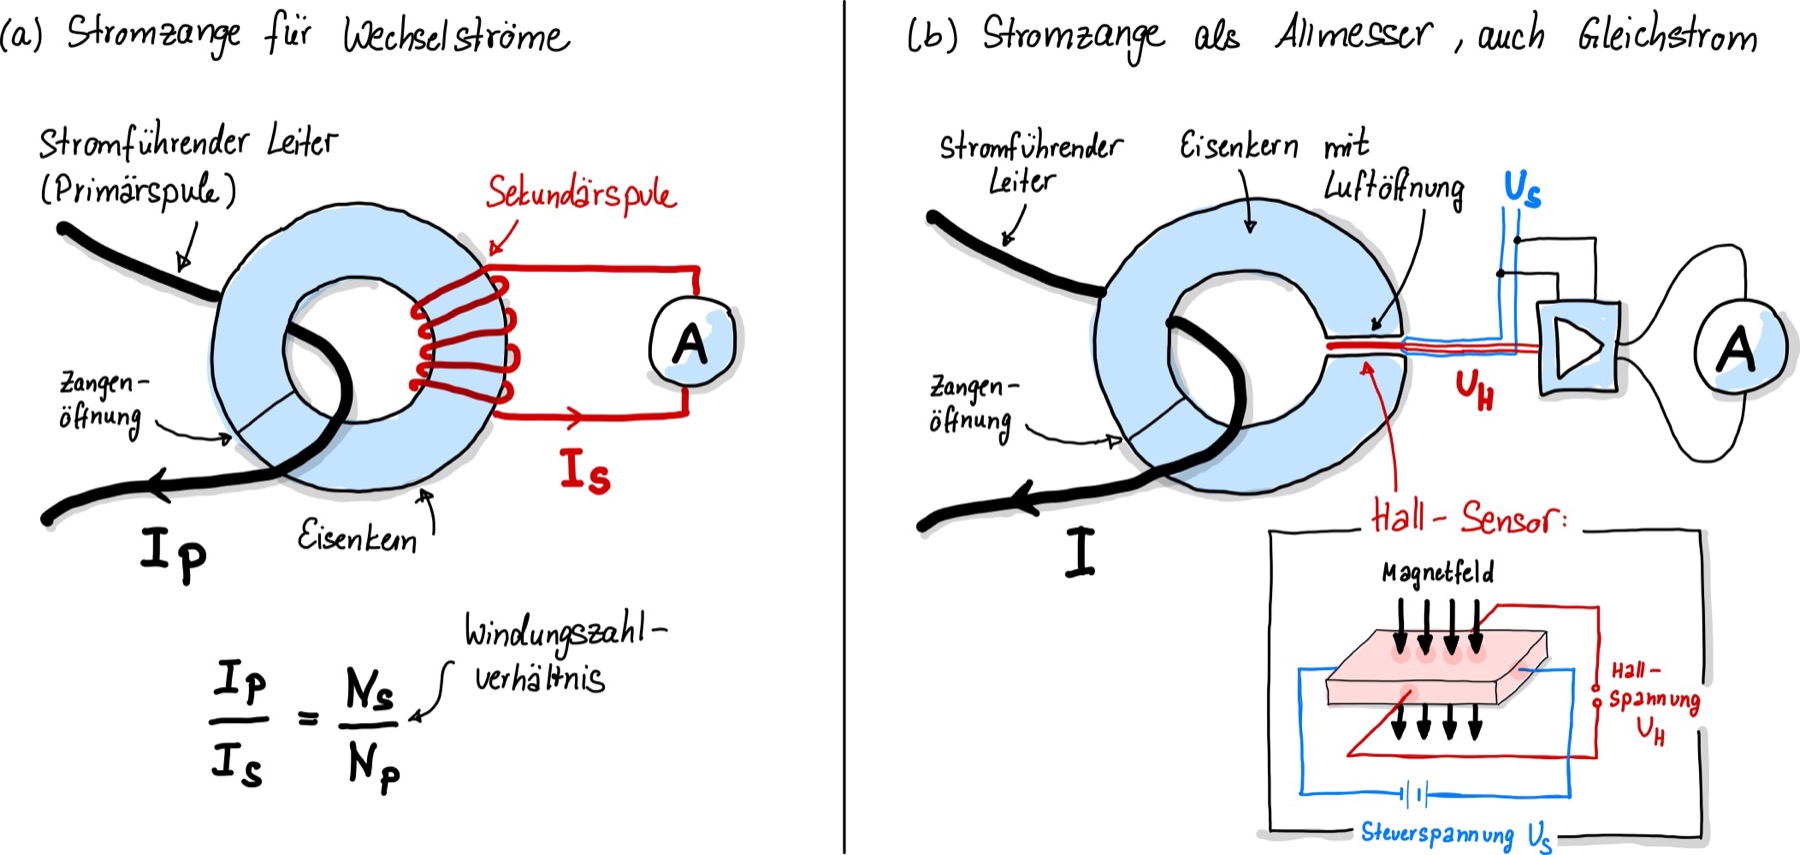 (a) Stromzange für Wechselströme
Stromführender Leiter
(Primärspule)
Sekundärspule
A
Zangen-
öffnung
Is
Ip
Eisenkern
Windungszahl-
verhältnis
Ip
Is
=
Ns
Np
(b) Stromzange als Allmesser, auch Gleichstrom
Stromführender
Leiter
Eisenkern mit
Luftöffnung
Us
A
UH
Zangen-
öffnung
I
Hall-Sensor:
Magnetfeld
Hall-
spannung
UH
Steuerspannung Us